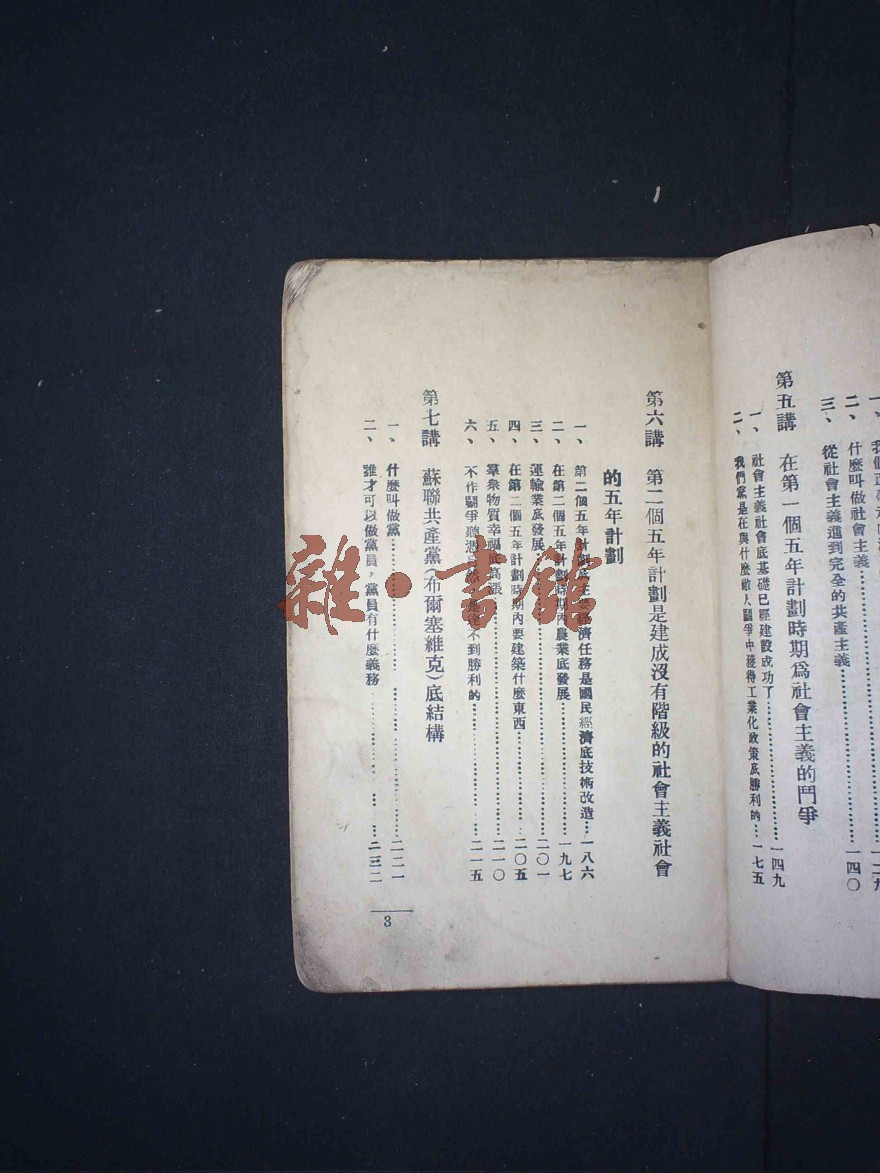 二、什麼叫做社會主義…………一四〇
三、從社會主義進到完全的共產主義…………
第五講　在第一個五年計劃時期為社會主義的鬥爭
一、社會主義社會底基礎已經建設成功了…………一四九
二、我們黨是在與什麼敵人鬭爭中獲得工業化政策底勝利的…一七五
第六講　第二個五年計劃是建成沒有階級的社會主義社會
的五年計劃
一、第二個五年計劃底主要經濟任務是國民經濟底技術改造…一八六
二、在第二個五年計劃時期內農業底發展…………一九七
三、運輸業底發展…………二〇一
四、在第二個五年計劃時期內要建築什麼東西…………二〇五
五、羣衆物質幸福底高漲…………二一〇
六、不作鬭爭聽憑自然是達不到勝利的…………二一五
第七講　蘇聯共產黨（布爾塞維克）底結構
一、什麼叫做黨…………二二一
二、誰才可以做黨員，黨員有什麼義務…………二三二
3
雜·書館